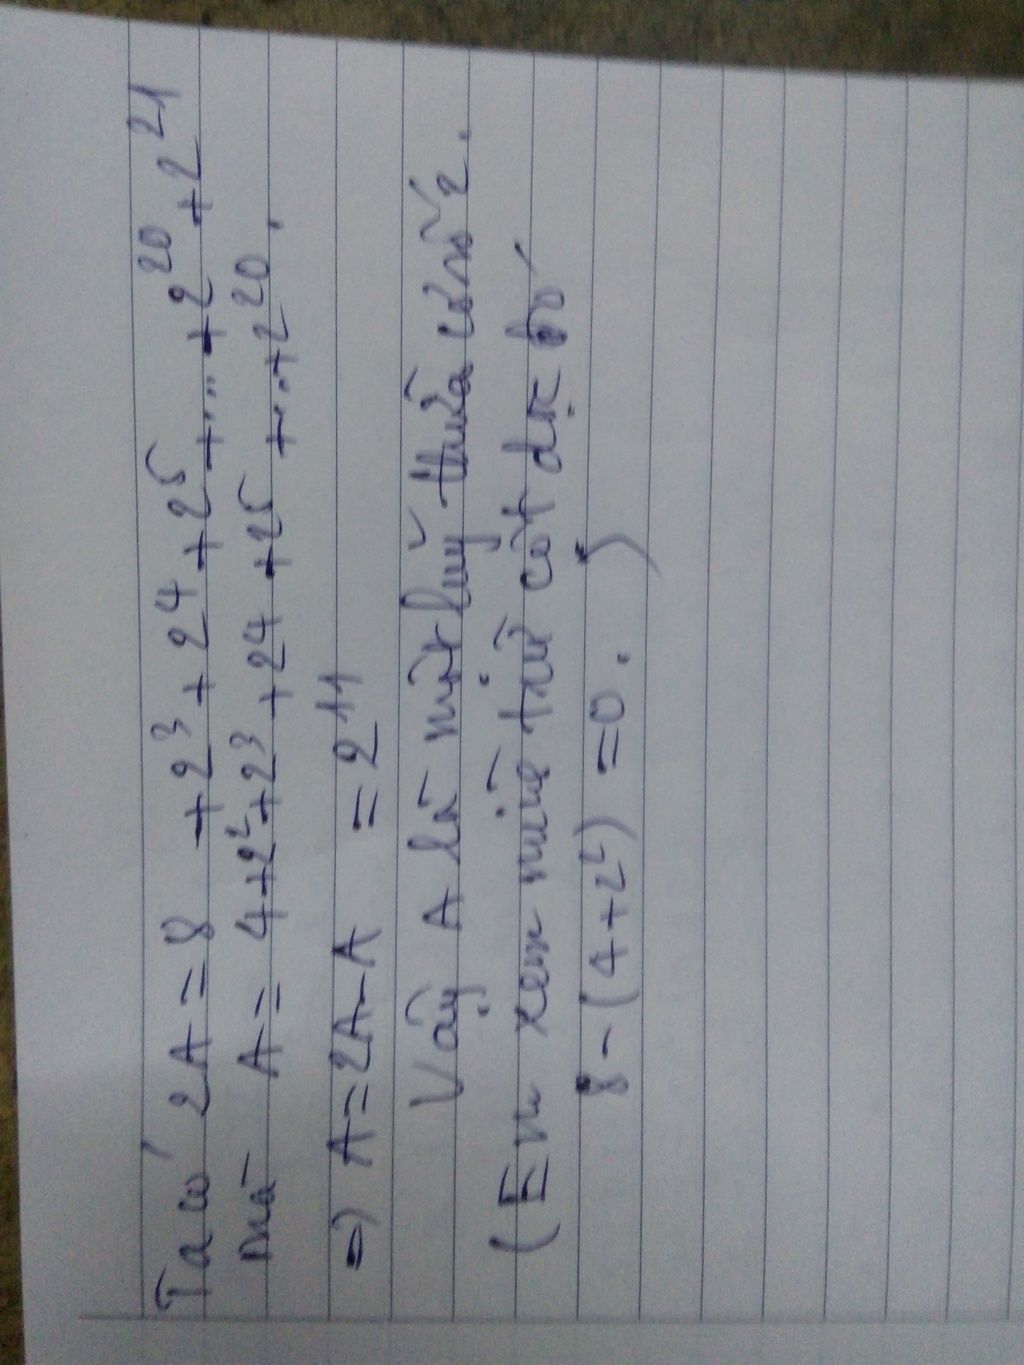 Ta có 2A = 8 + 2³ + 2⁴ + 2⁵ + .... + 2²⁰ + 2²¹
mà A = 4 + 2² + 2³ + 2⁴ + 2⁵ + ... + 2²⁰.
=> A = 2A - A = 2¹¹
Vậy A là một luỹ thừa cơ số 2.
(Em xem mình trừ cột dọc
8 - (4 + 2²) = 0. )